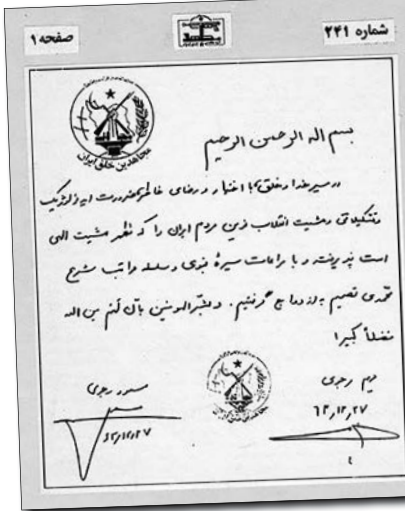 شماره ۲۴۱
صفحه ۱
مجاهدین خلق ایران
بسم الله الرحمن الرحیم
در مسیر خدا و خلق، با اختیار و رضای خاطر، ضرورت ایدئولوژیک
و تشکیلاتی و مشیت انقلاب نوین مردم ایران را که مظهر مشیت الهی
است پذیرفته و با مراعات سیره نبوی و سلسله مراتب شرع
محمدی تصمیم به ازدواج گرفتیم. و بشر المومنین بان لهم من الله
فضلاً کبیرا
مریم رجوی
مسعود رجوی
۶۳,۱۲,۲۷
۶۳,۱۲,۲۷
مجاهدین خلق ایران